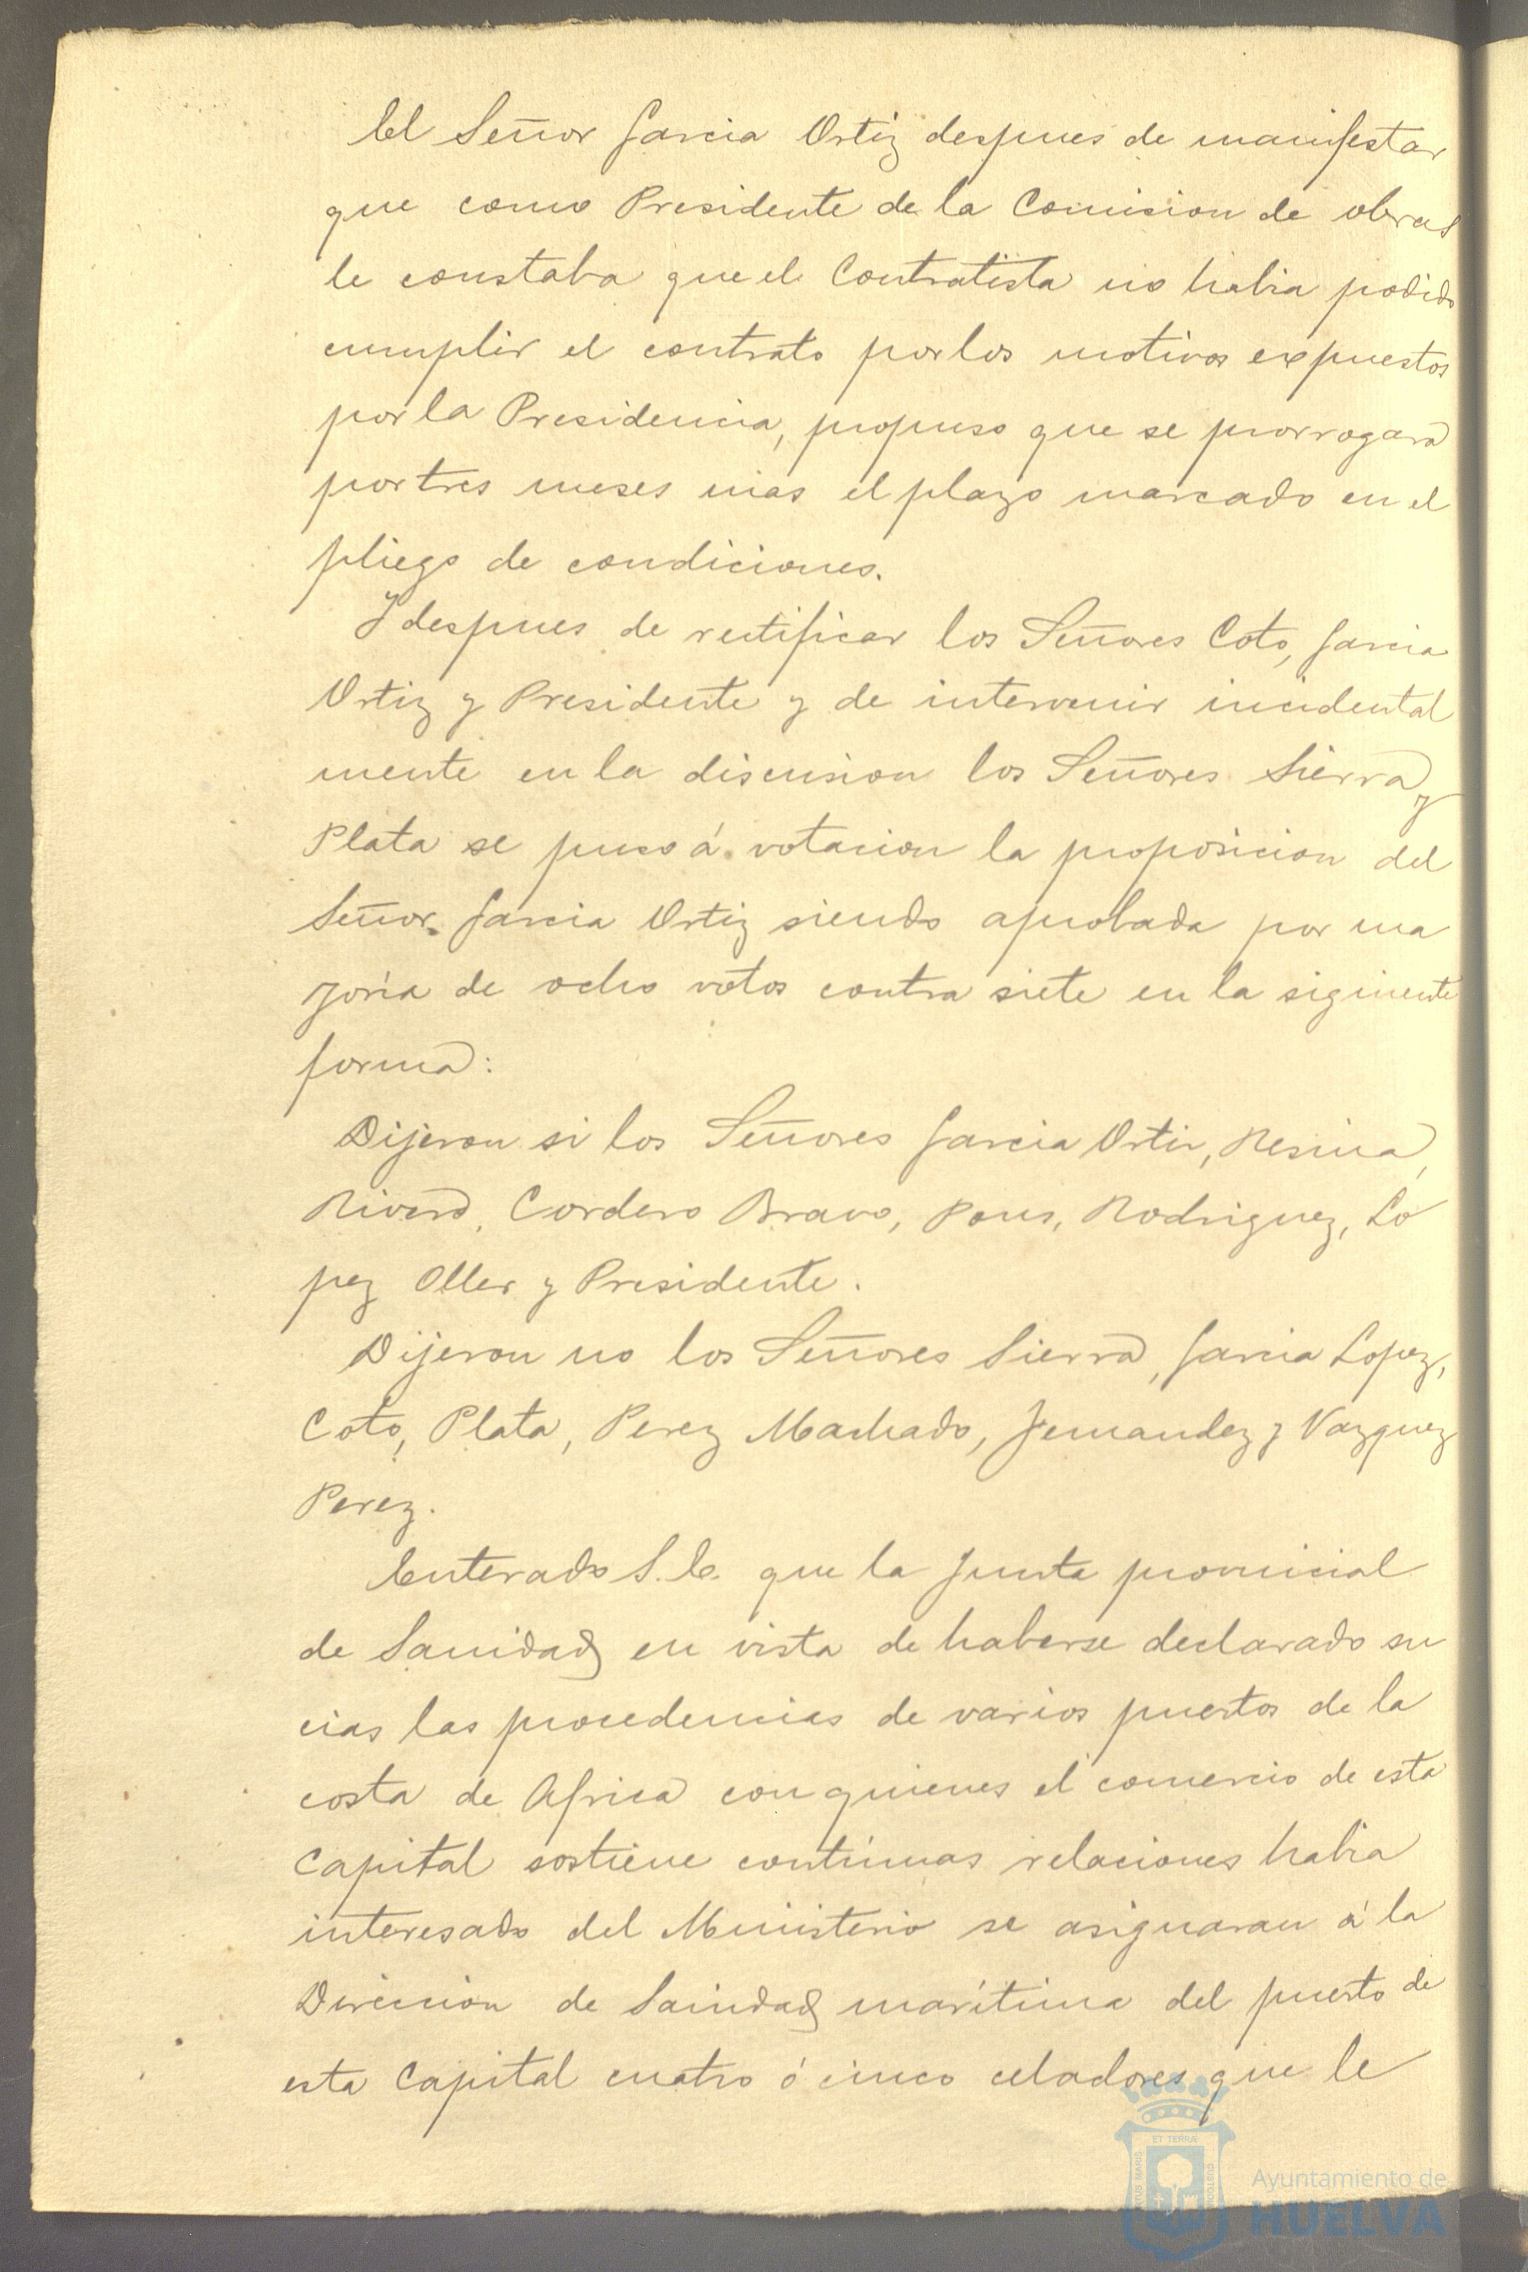 El Señor Garcia Ortiz despues de manifestar
que como Presidente de la Comision de obras
le constaba que el Contratista no habia podido
cumplir el contrato por los motivos expuestos
por la Presidencia, propuso que se prorrogara
por tres meses mas el plazo marcado en el
pliego de condiciones.
Y despues de rectificar los Señores Coto, Garcia
Ortiz y Presidente y de intervenir incidental
mente en la discusion los Señores Sierra y
Plata se puso á votacion la proposicion del
Señor Garcia Ortiz siendo aprobada por ma
yoria de ocho votos contra siete en la siguiente
forma:
Dijeron si los Señores Garcia Ortiz, Resina,
Rivero, Cordero Bravo, Pons, Rodriguez, Lo
pez Oller y Presidente.
Dijeron no los Señores Sierra, Garcia Lopez,
Coto, Plata, Perez Machado, Fernandez y Vazquez
Perez.
Enterado S.E. que la Junta provincial
de Sanidad en vista de haberse declarado su
cias las procedencias de varios puertos de la
costa de Africa con quienes el comercio de esta
Capital sostiene contínuas relaciones habia
interesado del Ministerio se asignaran á la
Direccion de Sanidad marítima del puerto de
esta Capital cuatro ó cinco celadores que le
ET TERRÆ
Ayuntamiento de
HUELVA